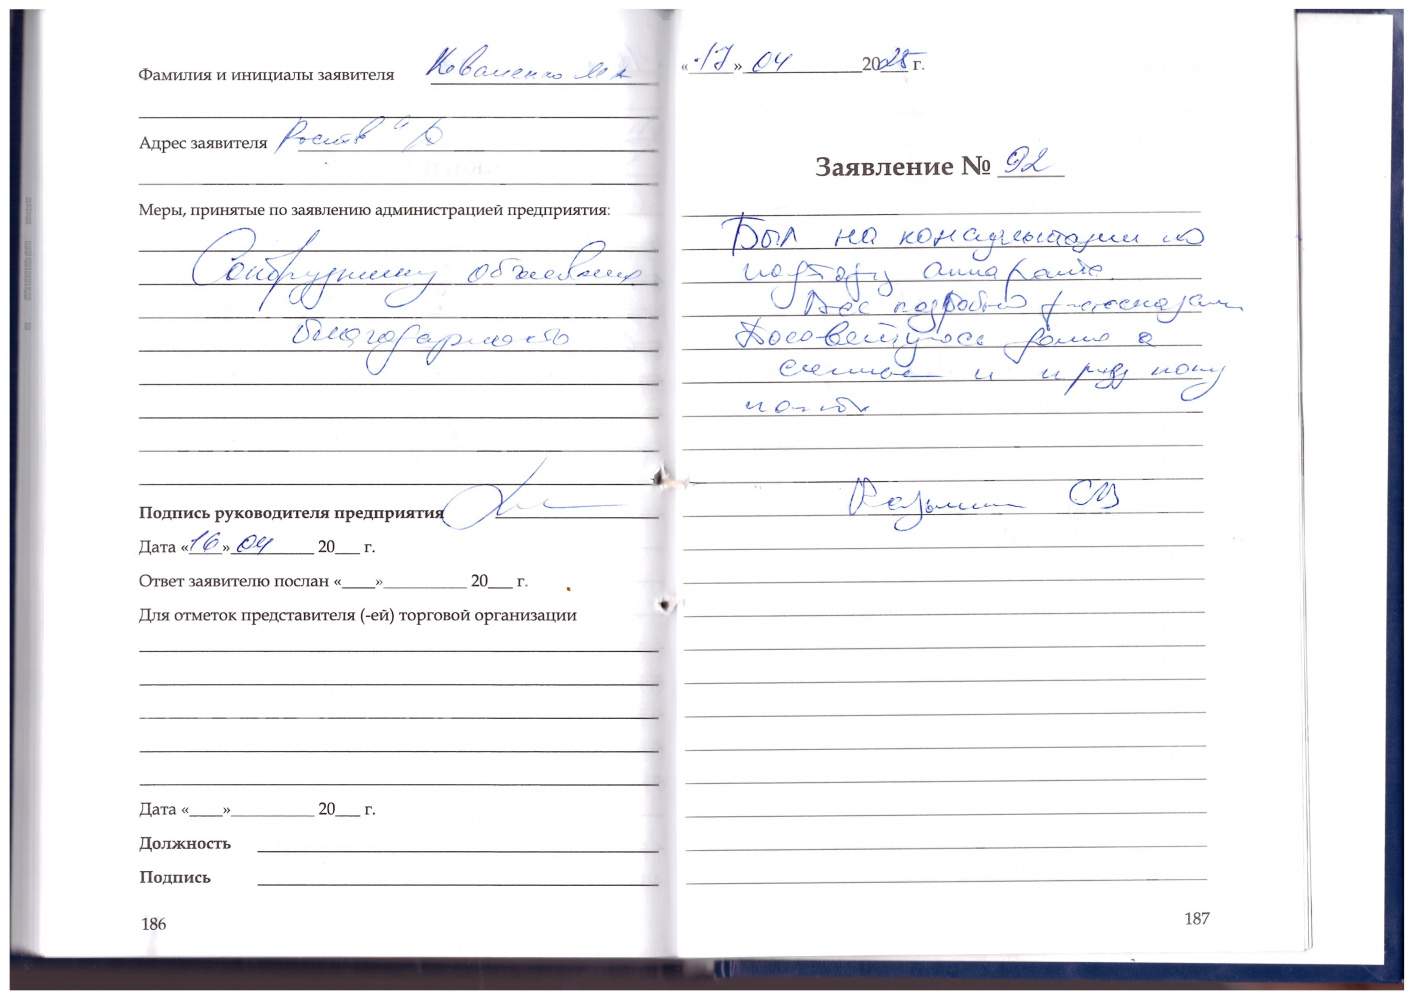 Фамилия и инициалы заявителя Коваленко
Адрес заявителя Ростов н/Д
Меры, принятые по заявлению администрацией предприятия:
Сотруднику объявлена
благодарность
Подпись руководителя предприятия
Дата «16» 04 20___ г.
Ответ заявителю послан «____»__________ 20___ г.
Для отметок представителя (-ей) торговой организации
Дата «____»__________ 20___ г.
Должность
Подпись
186
«17» 04 2025 г.
Заявление № 92
Был на консультации по
подбору аппарата.
Все подробно рассказали
Посоветуюсь дома с
семьей и приду
187